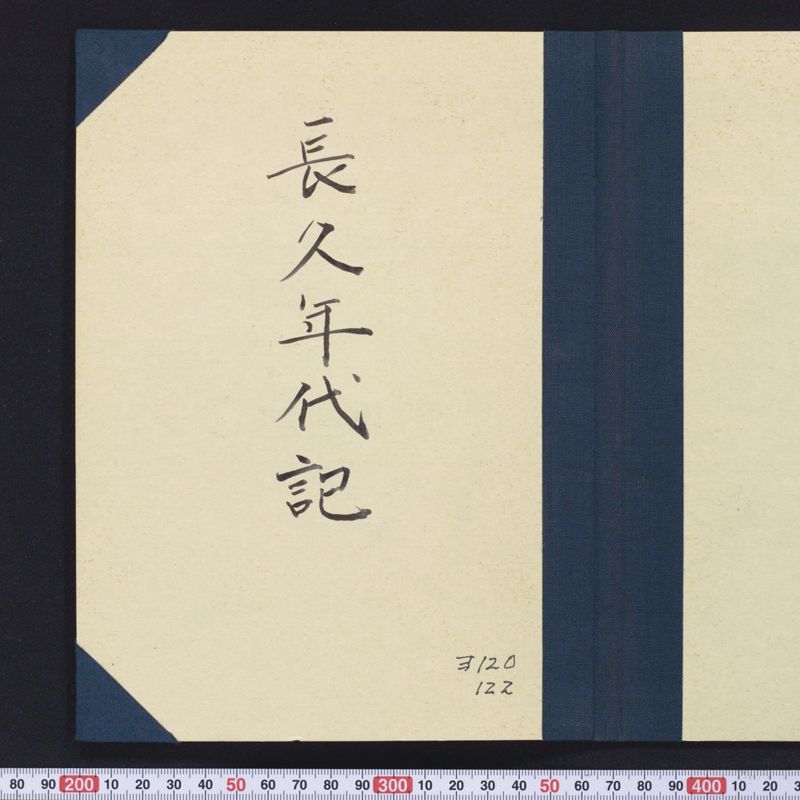 長久年代記
ヨ120
122
80 90 200 10 20 30 40 50 60 70 80 90 300 10 20 30 40 50 60 70 80 90 400 10 20 3